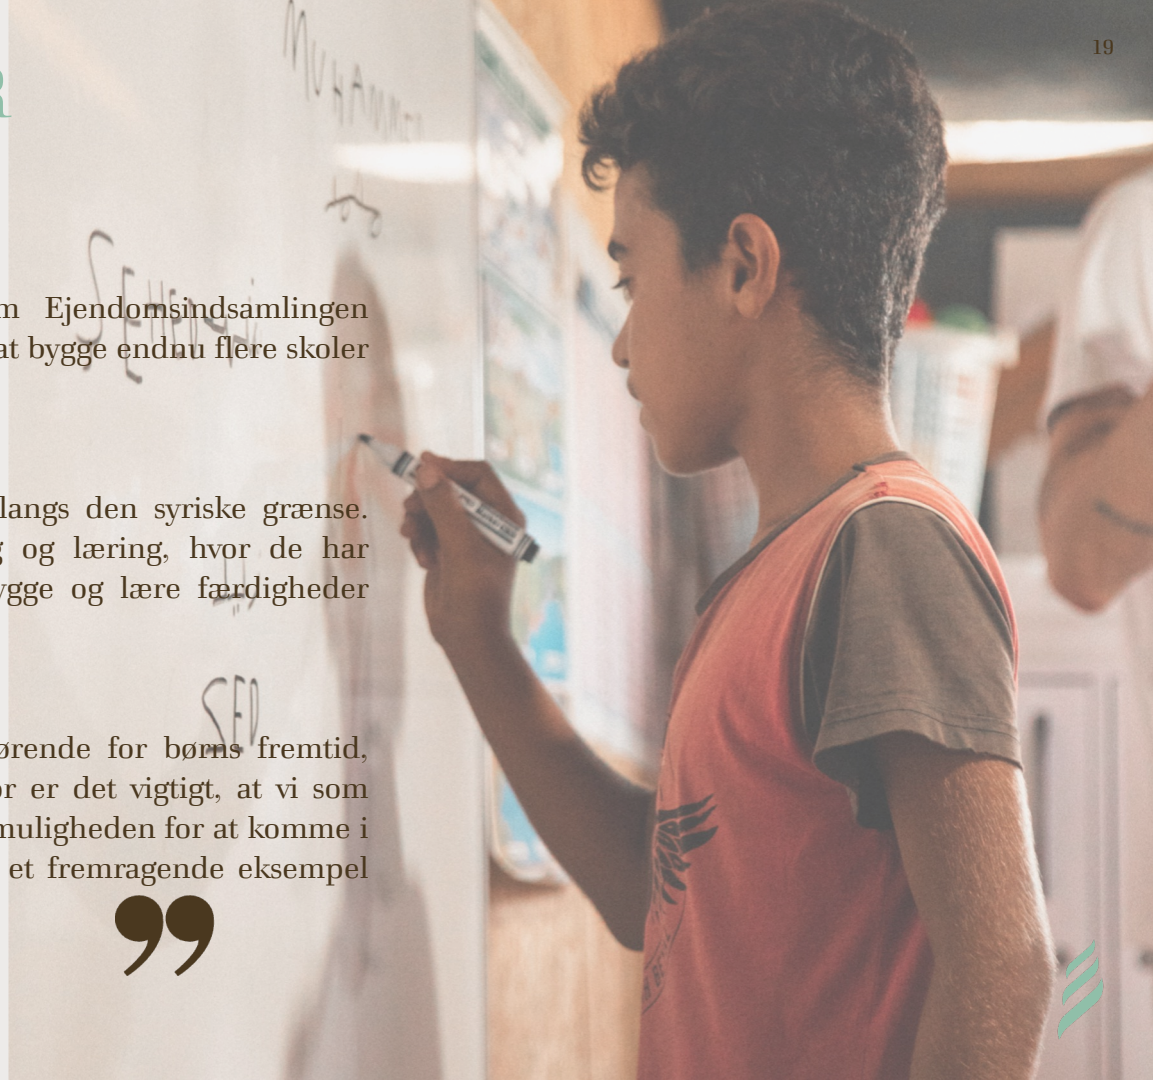 19
R
MUHAMMED
m Ejendomsindsamlingen
at bygge endnu flere skoler
langs den syriske grænse.
g og læring, hvor de har
ygge og lære færdigheder
SED
ørende for børns fremtid,
or er det vigtigt, at vi som
muligheden for at komme i
et fremragende eksempel
”